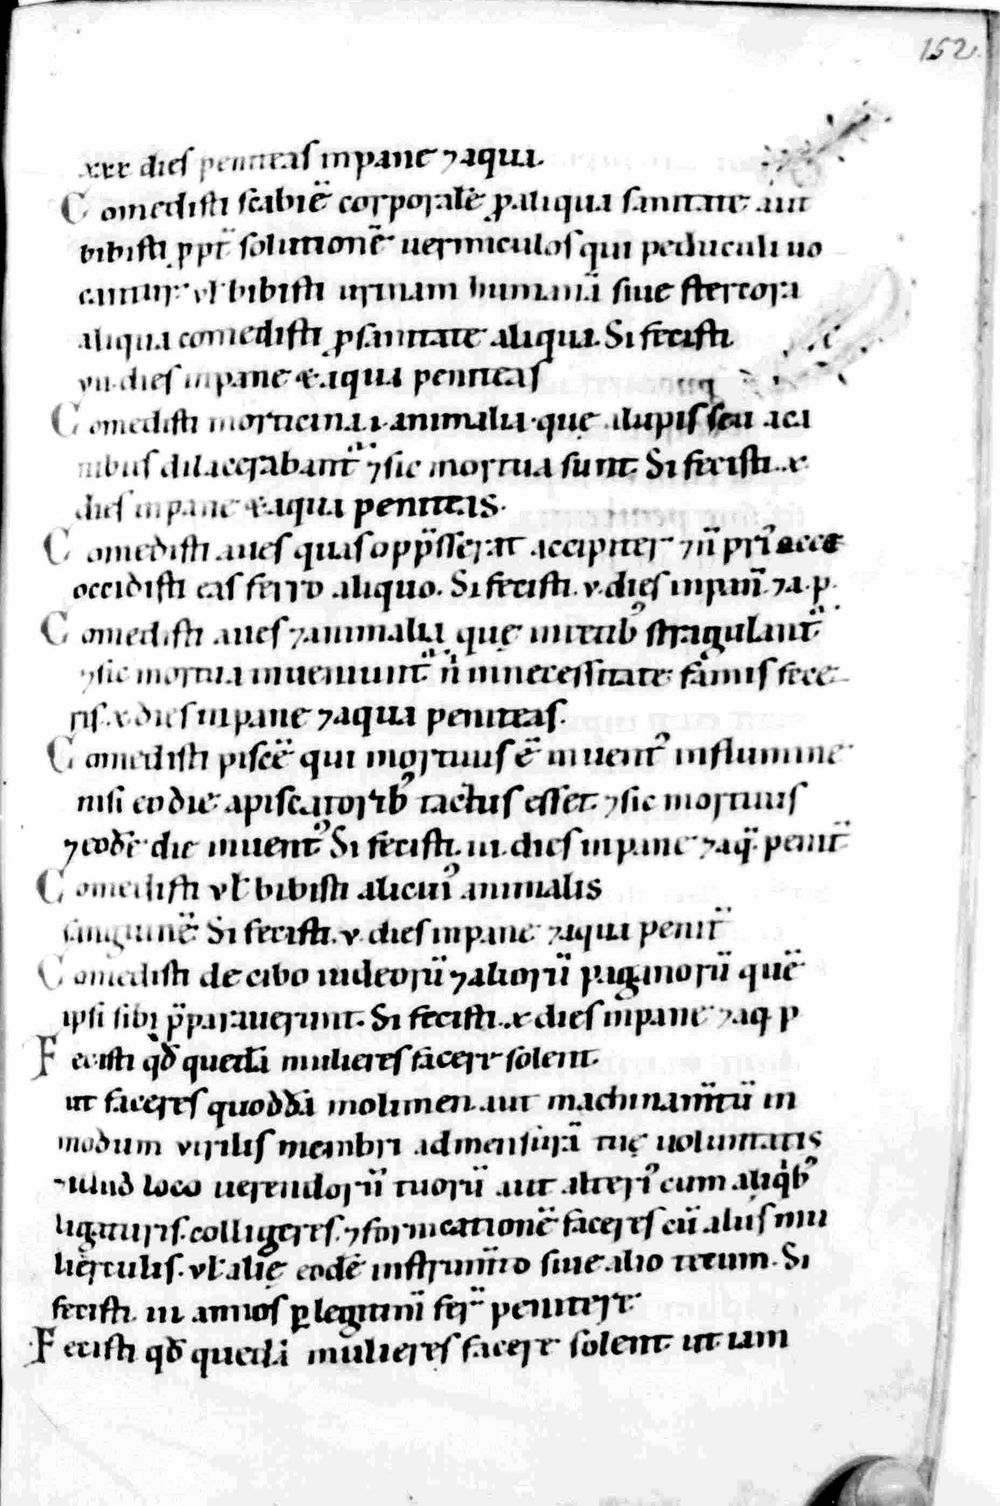 152
xxx dies peniteas in pane ⁊ aqua.
Comedisti scabiē corporalē ꝓ aliqua sanitate aut
bibisti ꝓpt̄ solutionē uermiculos qui peduculi uo
cantur. vl̄ bibisti urinam humanā siue stercora
aliqua comedisti ꝓ sanitate aliqua. Si fecisti
vii. dies in pane & aqua peniteas
Comedisti morticina .i. animalia. quę a lupis seu a ca
nibus dilacerabant᷑ ⁊ sic mortua sunt. Si fecisti .x.
dies in pane & aqua peniteas.
Comedisti aues quas opp̄sserat accipiter ⁊ n̄ pri᷒
occidisti eas ferro aliquo. Si fecisti. v. dies in pan̄ ⁊ a. p.
Comedisti aues ⁊ animalia quę in retib᷒ stragulant᷑
⁊ sic mortua inueniunt᷑ n̄ in necessitate famis fece
ris. x. dies in pane ⁊ aqua peniteas.
Comedisti piscē qui mortuus ē inuent᷒ in flumine
nisi eo die a piscatorib᷒ tactus esset. ⁊ sic mortuus
⁊ eodē die inuent᷒ Si fecisti. iii. dies in pane ⁊ aq̄. penit̄
Comedisti vl̄ bibisti alicui᷒ animalis
sanguinē. Si fecisti. v. dies in pane ⁊ aqua penit̄
Comedisti de cibo iudeorū ⁊ aliorū paganorū quē
ipsi sibi p̄parauerunt. Si fecisti. x dies in pane ⁊ aq p
Fecisti qd̄ quedā mulieres facere solent.
ut faceres quoddā molimen aut machinam̄tū in
modum virilis membri ad mensurā tuę uoluntatis
⁊ illud loco uerendorū tuorū aut alteri᷒ cum aliqͥb᷒
ligaturis. colligeres. ⁊ fornicationē faceres cū aliis mu
lierculis. vl̄ alię eodē instrum̄to siue alio tecum. Si
fecisti. iii annos ꝑ legitimī fer̄ penitere
Fecisti qd̄ quedā mulieres facere solent. ut iam